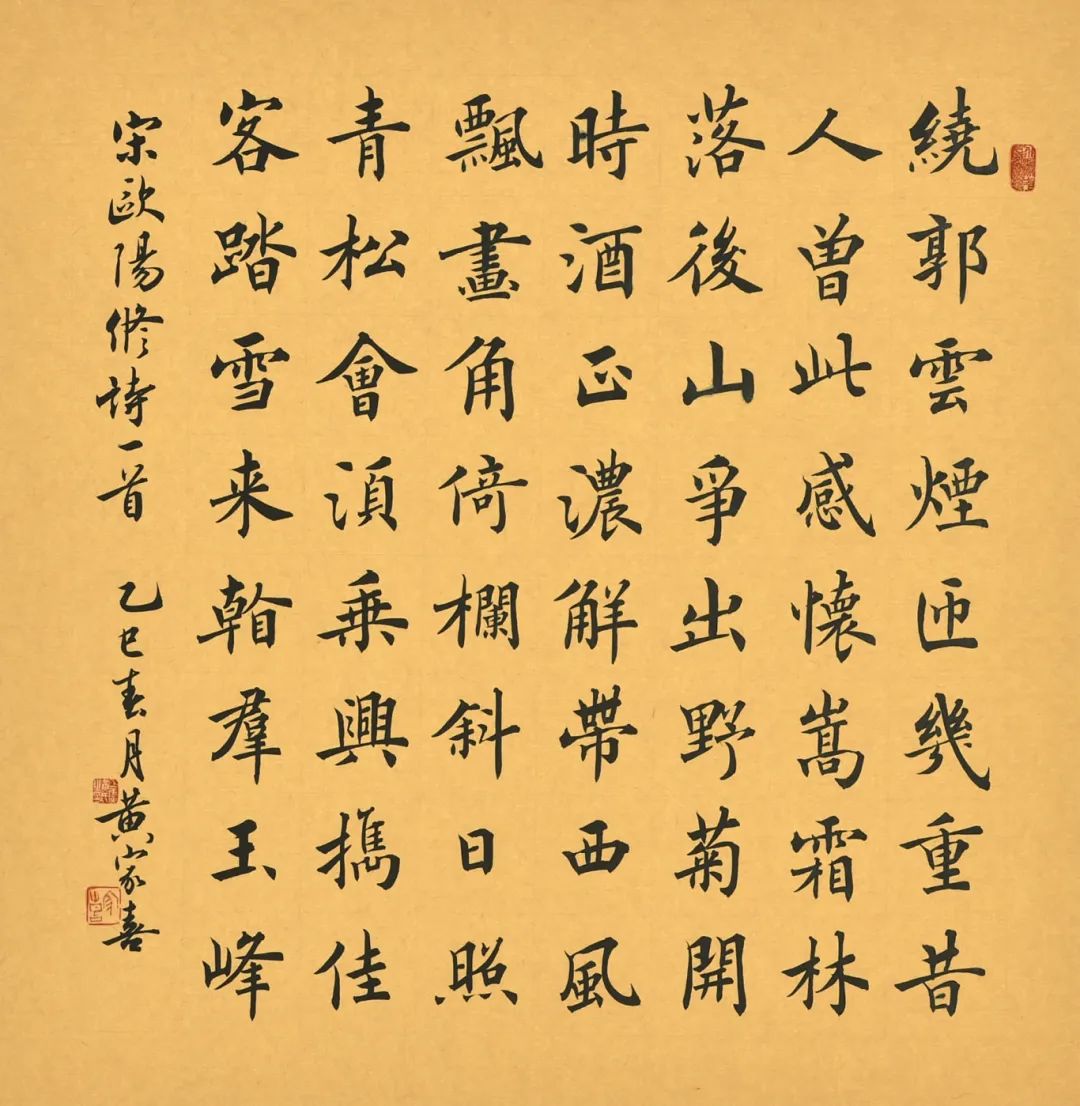 繞郭雲煙匝幾重昔
人曾此感懷嵩霜林
落後山爭出野菊開
時酒正濃解帶西風
飄畫角倚欄斜日照
青松會須乘興攜佳
客踏雪来看羣玉峰
宋歐陽修詩一首 乙巳春月 黄家喜